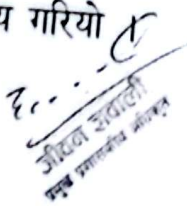 य गरियो
जीवन ज्ञवाली
प्रमुख प्रशासकीय अधिकृत